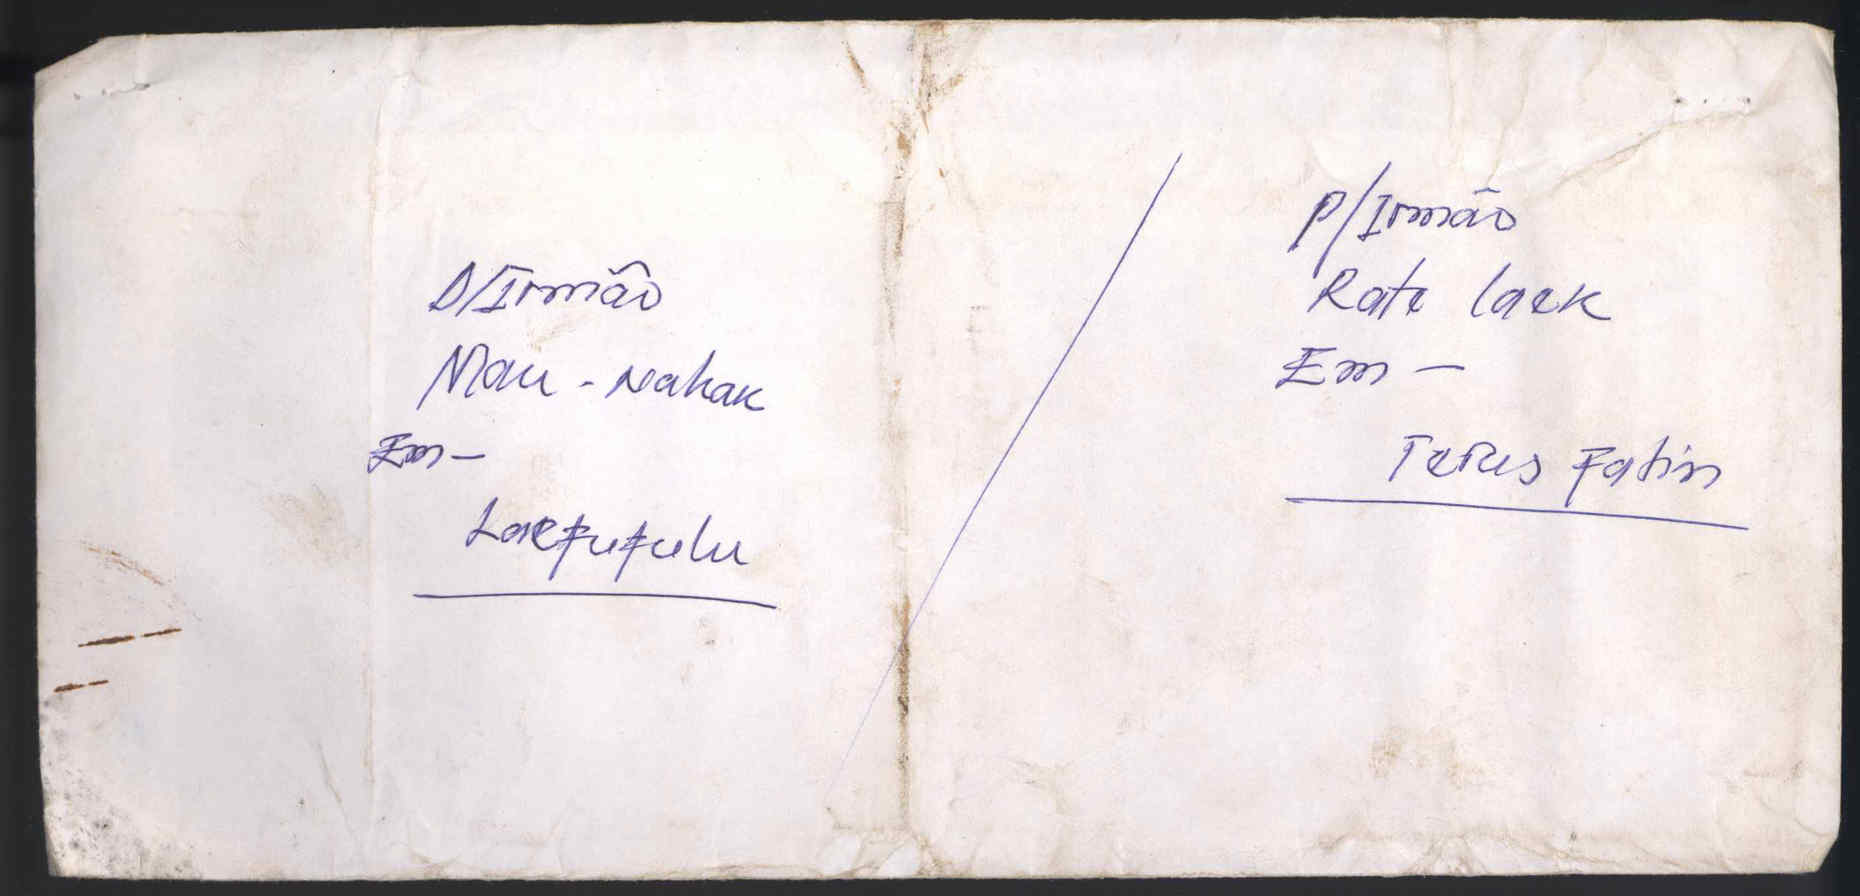 D/Irmão
Mau-Nahak
Em-
Laefufulu
P/Irmão
Rate laek
Em-
Terus Fatin